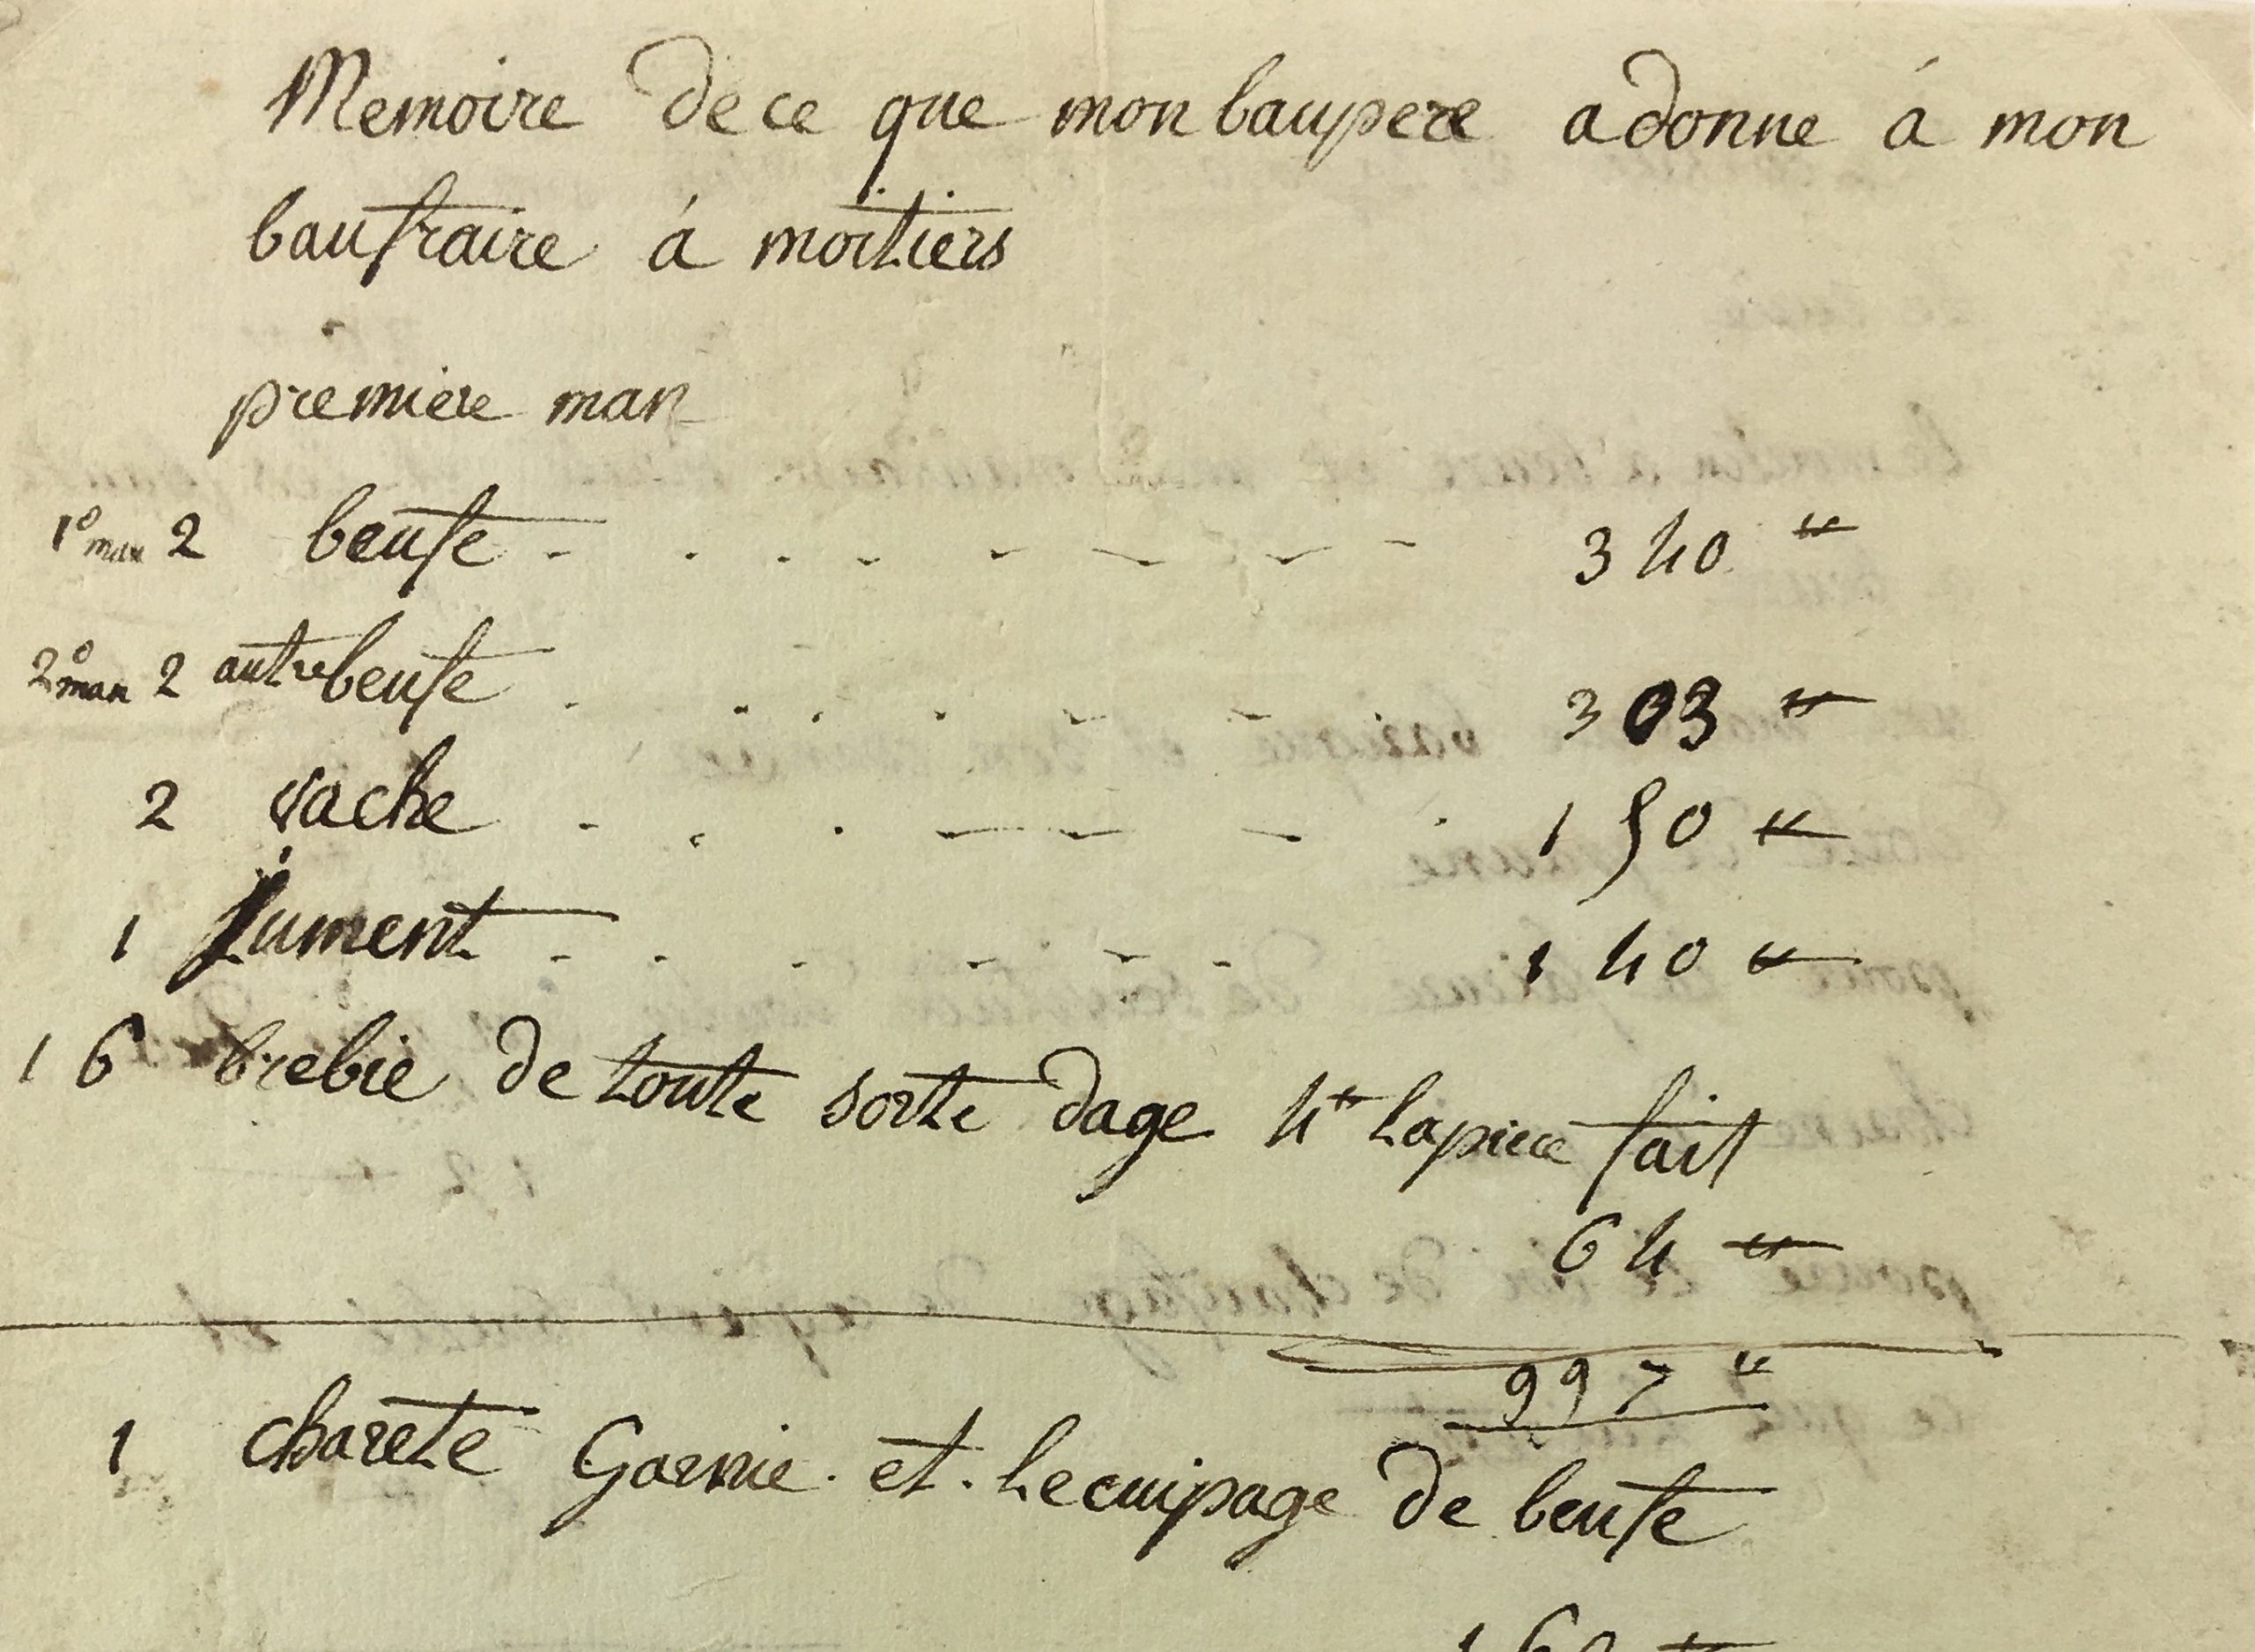 Memoire de ce que mon baupere a donne á mon
baufraire á moitiers
premiere man
1º man 2 beufe - . . . - - - - - - 340 ₶
2º man 2 autre beufe . . . . - - 303 ₶
2 vache . . . - - - . 150 ₶
1 Jument - . . - - - - 140 ₶
16 brebie de toute sorte dage 4₶ lapiece fait
64 ₶
997 ₶
1 charete Garnie et Lecuipage de beufe